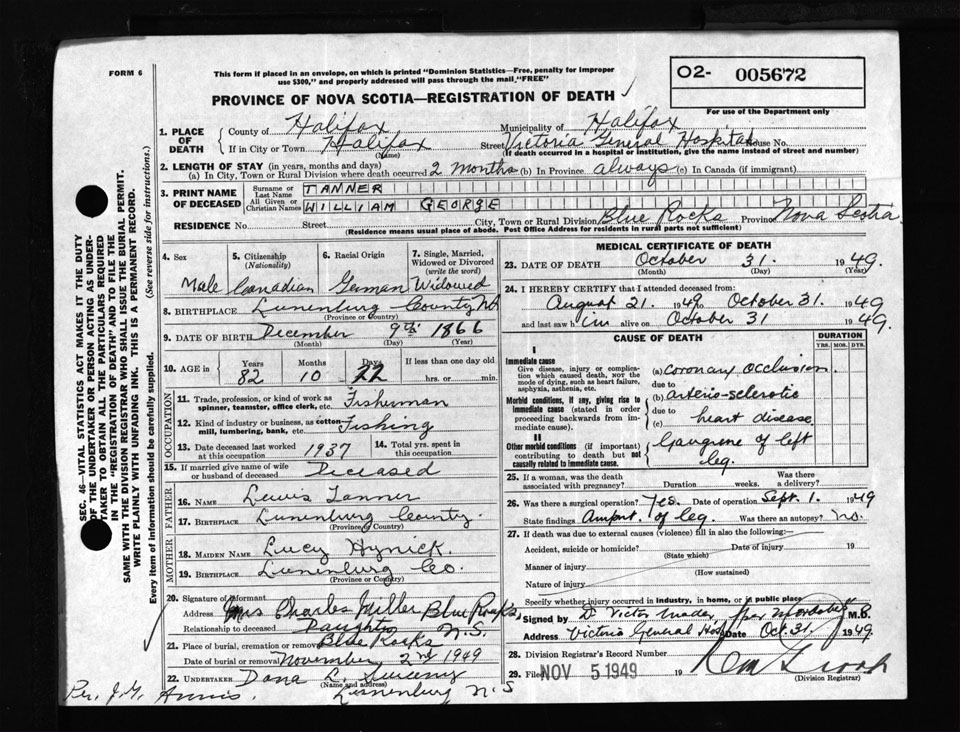 FORM 6
This form if placed in an envelope, on which is printed "Dominion Statistics—Free, penalty for improper
use $300," and properly addressed will pass through the mail, "FREE"
O2- 005672
For use of the Department only
PROVINCE OF NOVA SCOTIA—REGISTRATION OF DEATH
1. PLACE OF DEATH { County of Halifax Municipality of Halifax
If in City or Town Halifax (Name) Street Victoria General Hospital House No.
(If death occurred in a hospital or institution, give the name instead of street and number)
2. LENGTH OF STAY (in years, months and days)
(a) In City, Town or Rural Division where death occurred 2 months (b) In Province always (c) In Canada (if immigrant)
3. PRINT NAME OF DECEASED { Surname or Last Name TANNER
All Given or Christian Names WILLIAM GEORGE
RESIDENCE No. Street City, Town or Rural Division Blue Rocks Province Nova Scotia
(Residence means usual place of abode. Post Office Address for Residents in rural parts not sufficient)
4. Sex 5. Citizenship (Nationality) 6. Racial Origin 7. Single, Married, Widowed or Divorced (write the word)
Male Canadian German Widowed
8. BIRTHPLACE Lunenburg County NS
(Province or Country)
9. DATE OF BIRTH December 9th 1866
(Month) (Day) (Year)
10. AGE in { Years Months Days If less than one day old
82 10 22 hrs. or min.
OCCUPATION
11. Trade, profession, or kind of work as spinner, teamster, office clerk, etc. Fisherman
12. Kind of industry or business, as cotton mill, lumbering, bank, etc. Fishing
13. Date deceased last worked at this occupation 1937 14. Total yrs. spent in this occupation
15. If married give name of wife or husband of deceased Deceased
FATHER
16. NAME Lewis Tanner
17. BIRTHPLACE Lunenburg County.
(Province or Country)
MOTHER
18. MAIDEN NAME Lucy Hynick.
19. BIRTHPLACE Lunenburg Co.
(Province or Country)
20. Signature of informant
Address Mrs Charles Miller Blue Rocks,
Relationship to deceased Daughter N.S.
21. Place of burial, cremation or removal Blue Rocks
Date of burial or removal November 2nd 1949
22. UNDERTAKER Dana L. Sweeny
(Name and address) Lunenburg N.S
Per. J.G. Annis.
MEDICAL CERTIFICATE OF DEATH
23. DATE OF DEATH October 31. 1949.
(Month) (Day) (Year)
24. I HEREBY CERTIFY that I attended deceased from:
August 21. 1949 to October 31. 1949
and last saw him alive on October 31 1949.
CAUSE OF DEATH DURATION
YRS. MOS. DYS.
I
Immediate cause
Give disease, injury or complication which caused death, not the mode of dying, such as heart failure, asphyxia, asthenia, etc.
(a) Coronary Occlusion.
due to
Morbid conditions, if any, giving rise to immediate cause (stated in order proceeding backwards from immediate cause).
(b) arterio-sclerotic
due to
(c) heart disease
II
Other morbid conditions (if important) contributing to death but not causally related to immediate cause.
Gangrene of left
leg.
25. If a woman, was the death associated with pregnancy? Duration weeks. Was there a delivery?
26. Was there a surgical operation? Yes. Date of operation Sept. 1. 1949
State findings Amput. of leg. Was there an autopsy? No.
27. If death was due to external causes (violence) fill in also the following:—
Accident, suicide or homicide? Date of injury 19
(State which)
Manner of injury
(How sustained)
Nature of injury
Specify whether injury occurred in industry, in home, or in public place
Signed by Victor Mader M.D.
Address Victoria General Hosp Date Oct. 31, 1949.
28. Division Registrar's Record Number
29. Filed NOV 5 1949 19
(Division Registrar)
SEC. 46—VITAL STATISTICS ACT MAKES IT THE DUTY
OF THE UNDERTAKER OR PERSON ACTING AS UNDER-
TAKER TO OBTAIN ALL THE PARTICULARS REQUIRED
IN THE "REGISTRATION OF DEATH" AND TO FILE THE
SAME WITH THE DIVISION REGISTRAR WHO SHALL ISSUE THE BURIAL PERMIT.
WRITE PLAINLY WITH UNFADING INK. THIS IS A PERMANENT RECORD.
Every item of information should be carefully supplied. (See reverse side for instructions.)